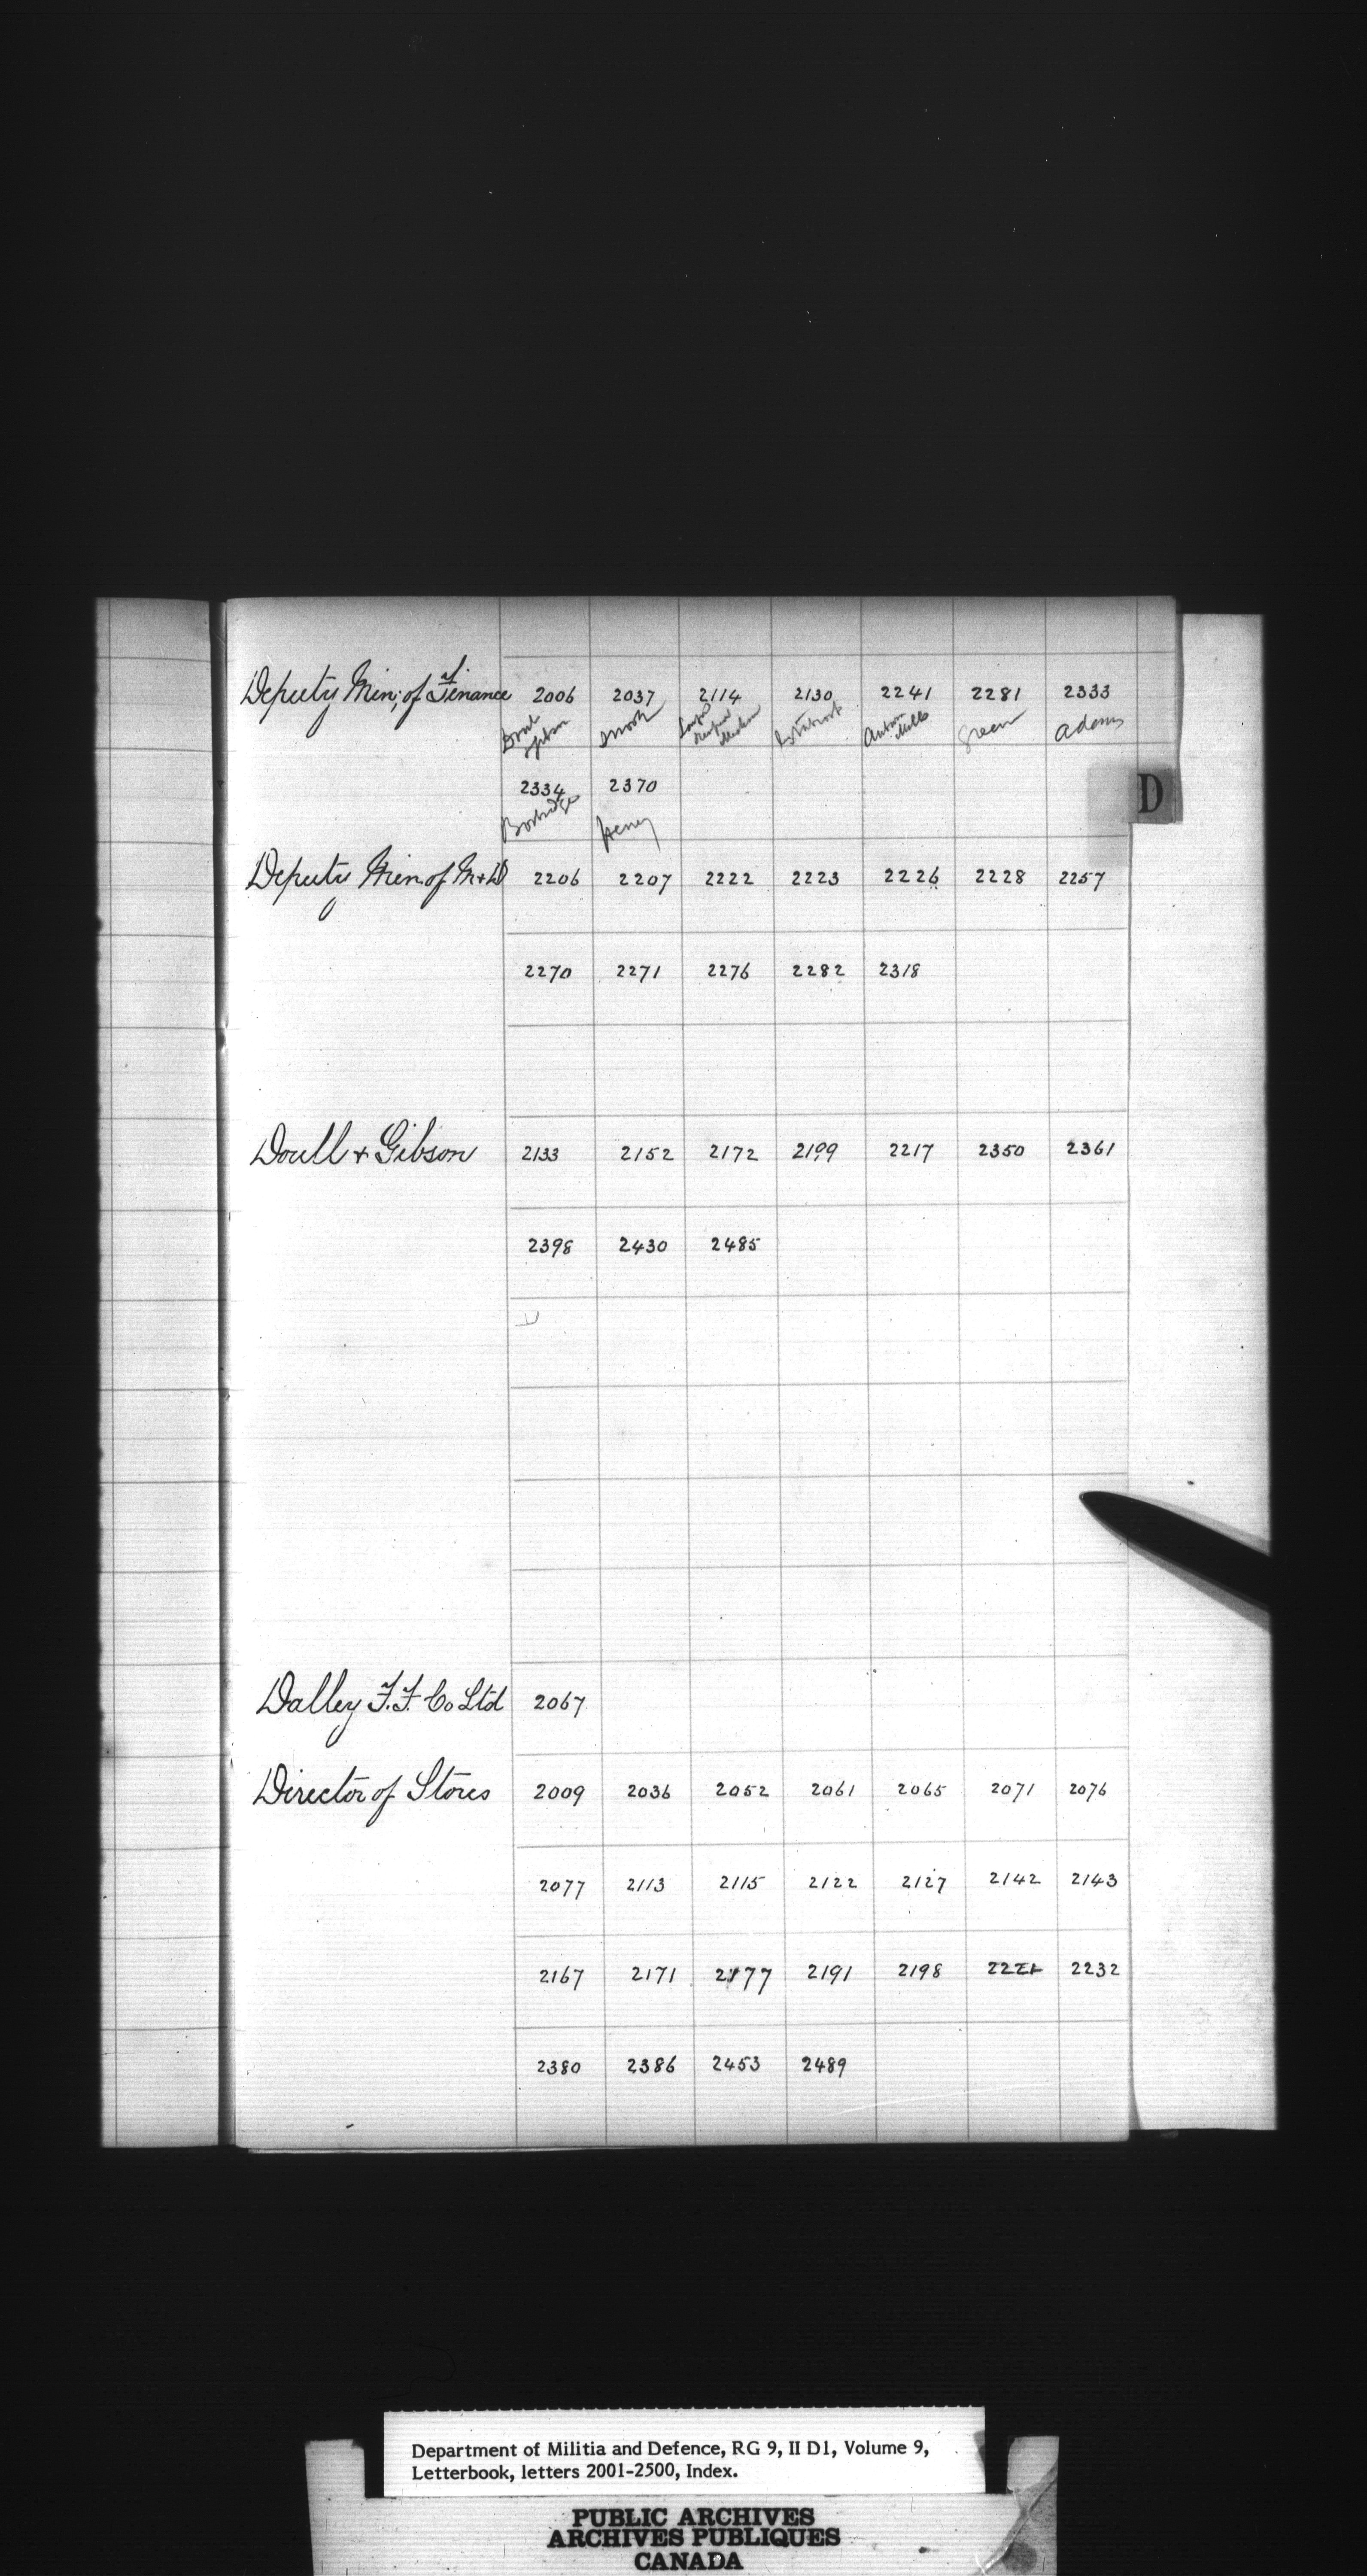 Deputy Min; of Finance 2006 2037 2114 2130 2241 2281 2333
Green Adams
2334 2370
Borbridge Heney
D
Deputy Min of M+D 2206 2207 2222 2223 2226 2228 2257
2270 2271 2276 2282 2318
Doull + Gibson 2133 2152 2172 2199 2217 2350 2361
2398 2430 2485
Dalley F.F. Co Ltd 2067
Director of Stores 2009 2036 2052 2061 2065 2071 2076
2077 2113 2115 2122 2127 2142 2143
2167 2171 2177 2191 2198 2221 2232
2380 2386 2453 2489
Department of Militia and Defence, RG 9, II D1, Volume 9,
Letterbook, letters 2001-2500, Index.
PUBLIC ARCHIVES
ARCHIVES PUBLIQUES
CANADA